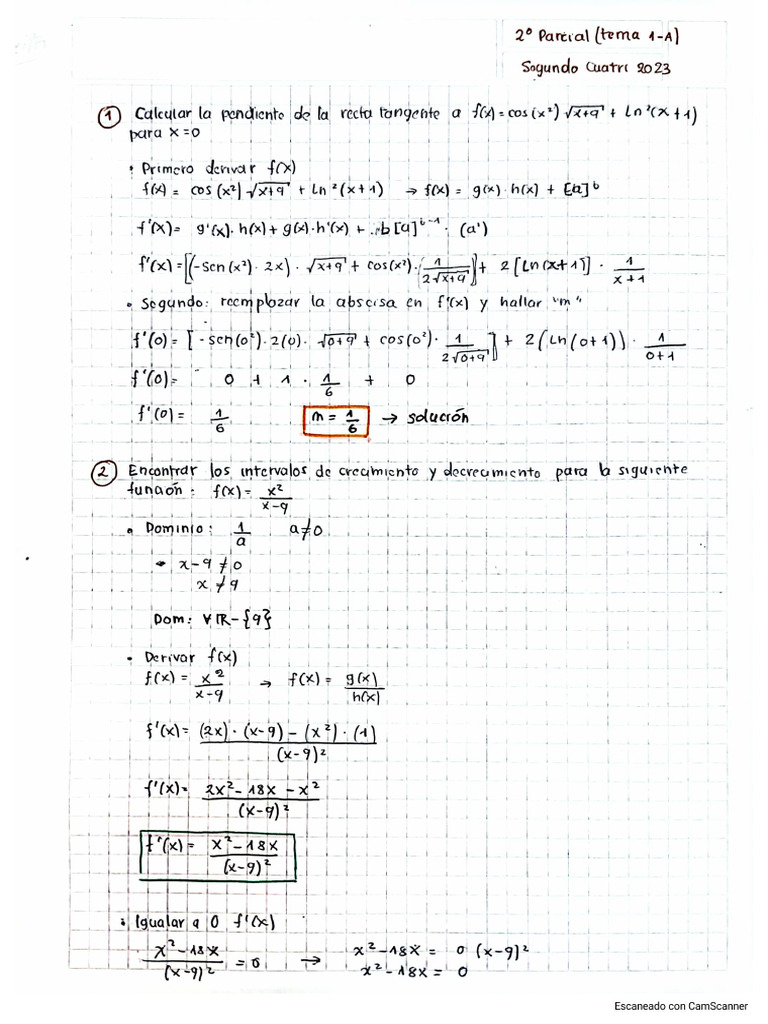 2º Parcial (tema 1-A)
Segundo Cuatri 2023
① Calcular la pendiente de la recta tangente a f(x) = cos(x²) √(x+9) + Ln²(x+1)
para x=0
• Primero derivar f(x)
f(x) = cos(x²) √(x+9) + Ln²(x+1) → f(x) = g(x)·h(x) + [a]ᵇ
f'(x) = g'(x)·h(x) + g(x)·h'(x) + b[a]ᵇ⁻¹ · (a')
f'(x) = [(-sen(x²)·2x)·√(x+9) + cos(x²)·(1/(2√(x+9)))] + 2[Ln(x+1)]·1/(x+1)
• Segundo: reemplazar la abscisa en f'(x) y hallar "m"
f'(0) = [-sen(0²)·2(0)·√(0+9) + cos(0²)·1/(2√(0+9))] + 2(Ln(0+1))·1/(0+1)
f'(0) = 0 + 1·1/6 + 0
f'(0) = 1/6 m = 1/6 → solución
② Encontrar los intervalos de crecimiento y decrecimiento para la siguiente
función: f(x) = x²/(x-9)
• Dominio: 1/a a≠0
• x-9 ≠ 0
x ≠ 9
Dom: ∀ℝ-{9}
• Derivar f(x)
f(x) = x²/(x-9) → f(x) = g(x)/h(x)
f'(x) = ((2x)·(x-9) - (x²)·(1))/(x-9)²
f'(x) = (2x² - 18x - x²)/(x-9)²
f'(x) = (x² - 18x)/(x-9)²
• Igualar a 0 f'(x)
(x² - 18x)/(x-9)² = 0 → x² - 18x = 0 (x-9)²
x² - 18x = 0
Escaneado con CamScanner